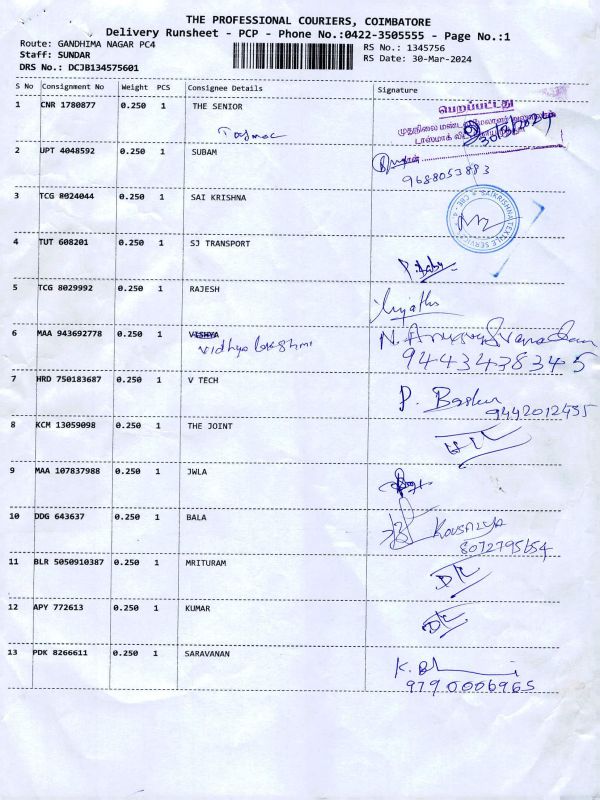 THE PROFESSIONAL COURIERS, COIMBATORE
Delivery Runsheet - PCP - Phone No.:0422-3505555 - Page No.:1
Route: GANDHIMA NAGAR PC4
Staff: SUNDAR
DRS No.: DCJB134575601
RS No.: 1345756
RS Date: 30-Mar-2024
S No Consignment No Weight PCS Consignee Details Signature
1 CNR 1780877 0.250 1 THE SENIOR
Tasmac
பெறப்பட்டது
30/3/2024
2 UPT 4048592 0.250 1 SUBAM
9688053883
3 TCG 8024044 0.250 1 SAI KRISHNA
SAIKRISHNA TEXTILE SERVICE CBE - 4
4 TUT 608201 0.250 1 SJ TRANSPORT
P. Babu
5 TCG 8029992 0.250 1 RAJESH
6 MAA 943692778 0.250 1 VISHYA
Vidhya lakshmi
9443438345
7 HRD 750183687 0.250 1 V TECH
P. Baskar
9442012435
8 KCM 13059098 0.250 1 THE JOINT
9 MAA 107837988 0.250 1 JWLA
10 DDG 643637 0.250 1 BALA
Kousalya
8072795654
11 BLR 5050910387 0.250 1 MRITURAM
12 APY 772613 0.250 1 KUMAR
13 PDK 8266611 0.250 1 SARAVANAN
9790006965